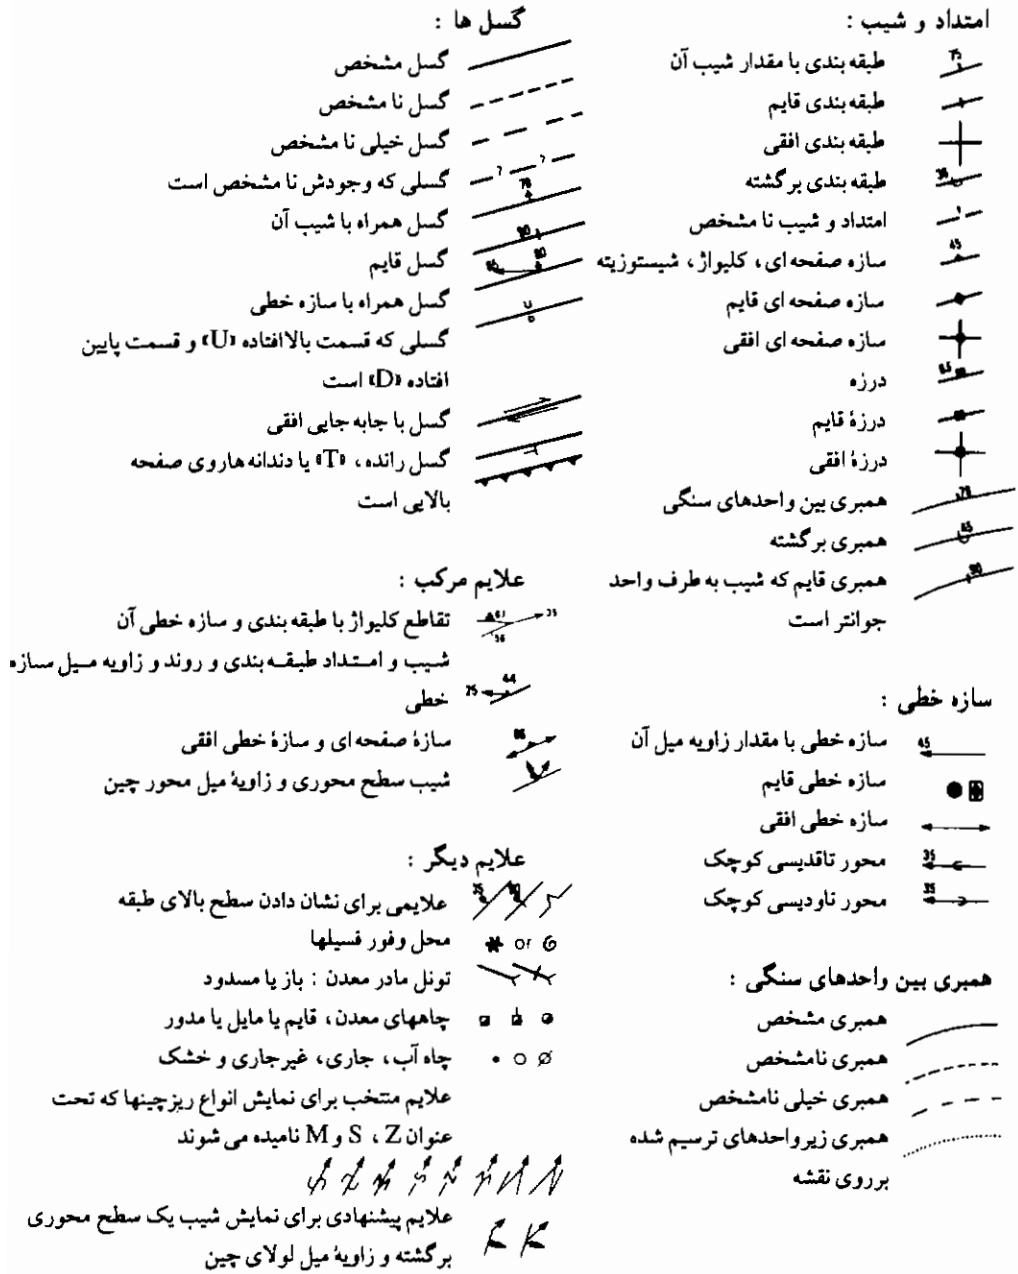 امتداد و شیب :
طبقه بندی با مقدار شیب آن
75
طبقه بندی قایم
طبقه بندی افقی
طبقه بندی برگشته
امتداد و شیب نا مشخص
سازه صفحه ای، کلیواژ، شیستوزیته
45
سازه صفحه ای قایم
سازه صفحه ای افقی
درزه
درزهٔ قایم
درزهٔ افقی
همبری بین واحدهای سنگی
همبری برگشته
همبری قایم که شیب به طرف واحد
90
جوانتر است
سازه خطی :
سازه خطی با مقدار زاویه میل آن
45
سازه خطی قایم
سازه خطی افقی
محور تاقدیسی کوچک
35
محور ناودیسی کوچک
35
همبری بین واحدهای سنگی :
همبری مشخص
همبری نامشخص
همبری خیلی نامشخص
همبری زیرواحدهای ترسیم شده
برروی نقشه
گسل ها :
گسل مشخص
گسل نا مشخص
گسل خیلی نا مشخص
گسلی که وجودش نا مشخص است
? ?
گسل همراه با شیب آن
70
گسل قایم
90
گسل همراه با سازه خطی
80
گسلی که قسمت بالاافتاده «U» و قسمت پایین
U
D
افتاده «D» است
گسل با جابه جایی افقی
گسل رانده، «T» یا دندانه هاروی صفحه
T
بالایی است
علایم مرکب :
تقاطع کلیواژ با طبقه بندی و سازه خطی آن
61 35
56
شیب و امتداد طبقه بندی و روند و زاویه میل سازه
خطی
44
25
سازهٔ صفحه ای و سازهٔ خطی افقی
شیب سطح محوری و زاویهٔ میل محور چین
علایم دیگر :
علایمی برای نشان دادن سطح بالای طبقه
محل وفور فسیلها
or
تونل مادر معدن : باز یا مسدود
چاههای معدن، قایم یا مایل یا مدور
چاه آب، جاری، غیرجاری و خشک
علایم منتخب برای نمایش انواع ریزچینها که تحت
عنوان Z ، S و M نامیده می شوند
علایم پیشنهادی برای نمایش شیب یک سطح محوری
برگشته و زاویهٔ میل لولای چین